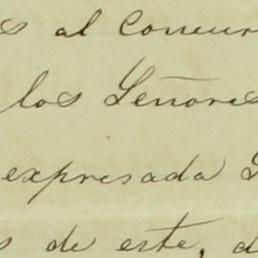 s al Concur
los Señores
expresada
s de este, d